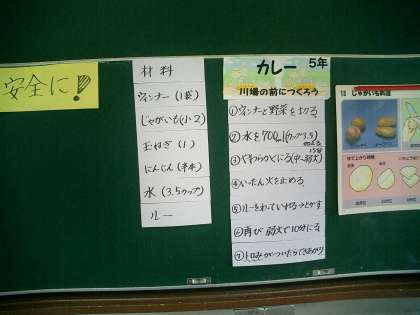 安全に！
材料
ウィンナー（1袋）
じゃがいも（小2）
玉ねぎ（1）
にんじん（半本）
水（3.5カップ）
ルー
カレー 5年
川場の前につくろう
①ウィンナーと野菜をきる。
②水を700ml（カップ3.5）
15分
④いったん火を止める。
⑤ルーをわっていれる→とかす
⑥再び弱火で10分にる。
⑦とろみがついたらできあがり
じゃがいも料理